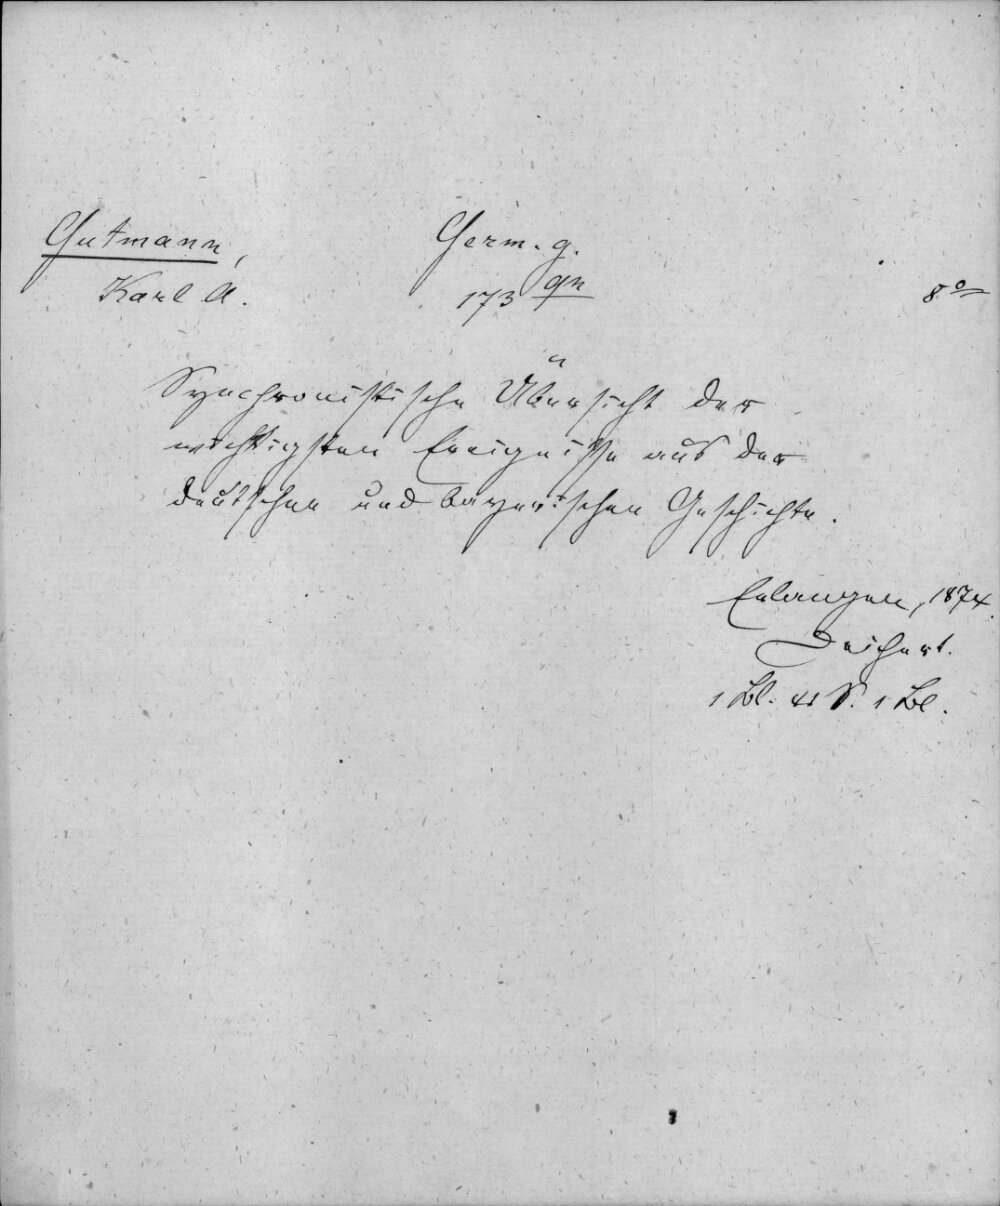 Gutmann,
Karl A.
Germ. g.
173 gn
8°
Synchronistische Übersicht der
wichtigsten Ereignisse aus der
deutschen und bayerischen Geschichte.
Erlangen, 1874.
Deichert.
1 Bl. 41 S. 1 Bl.